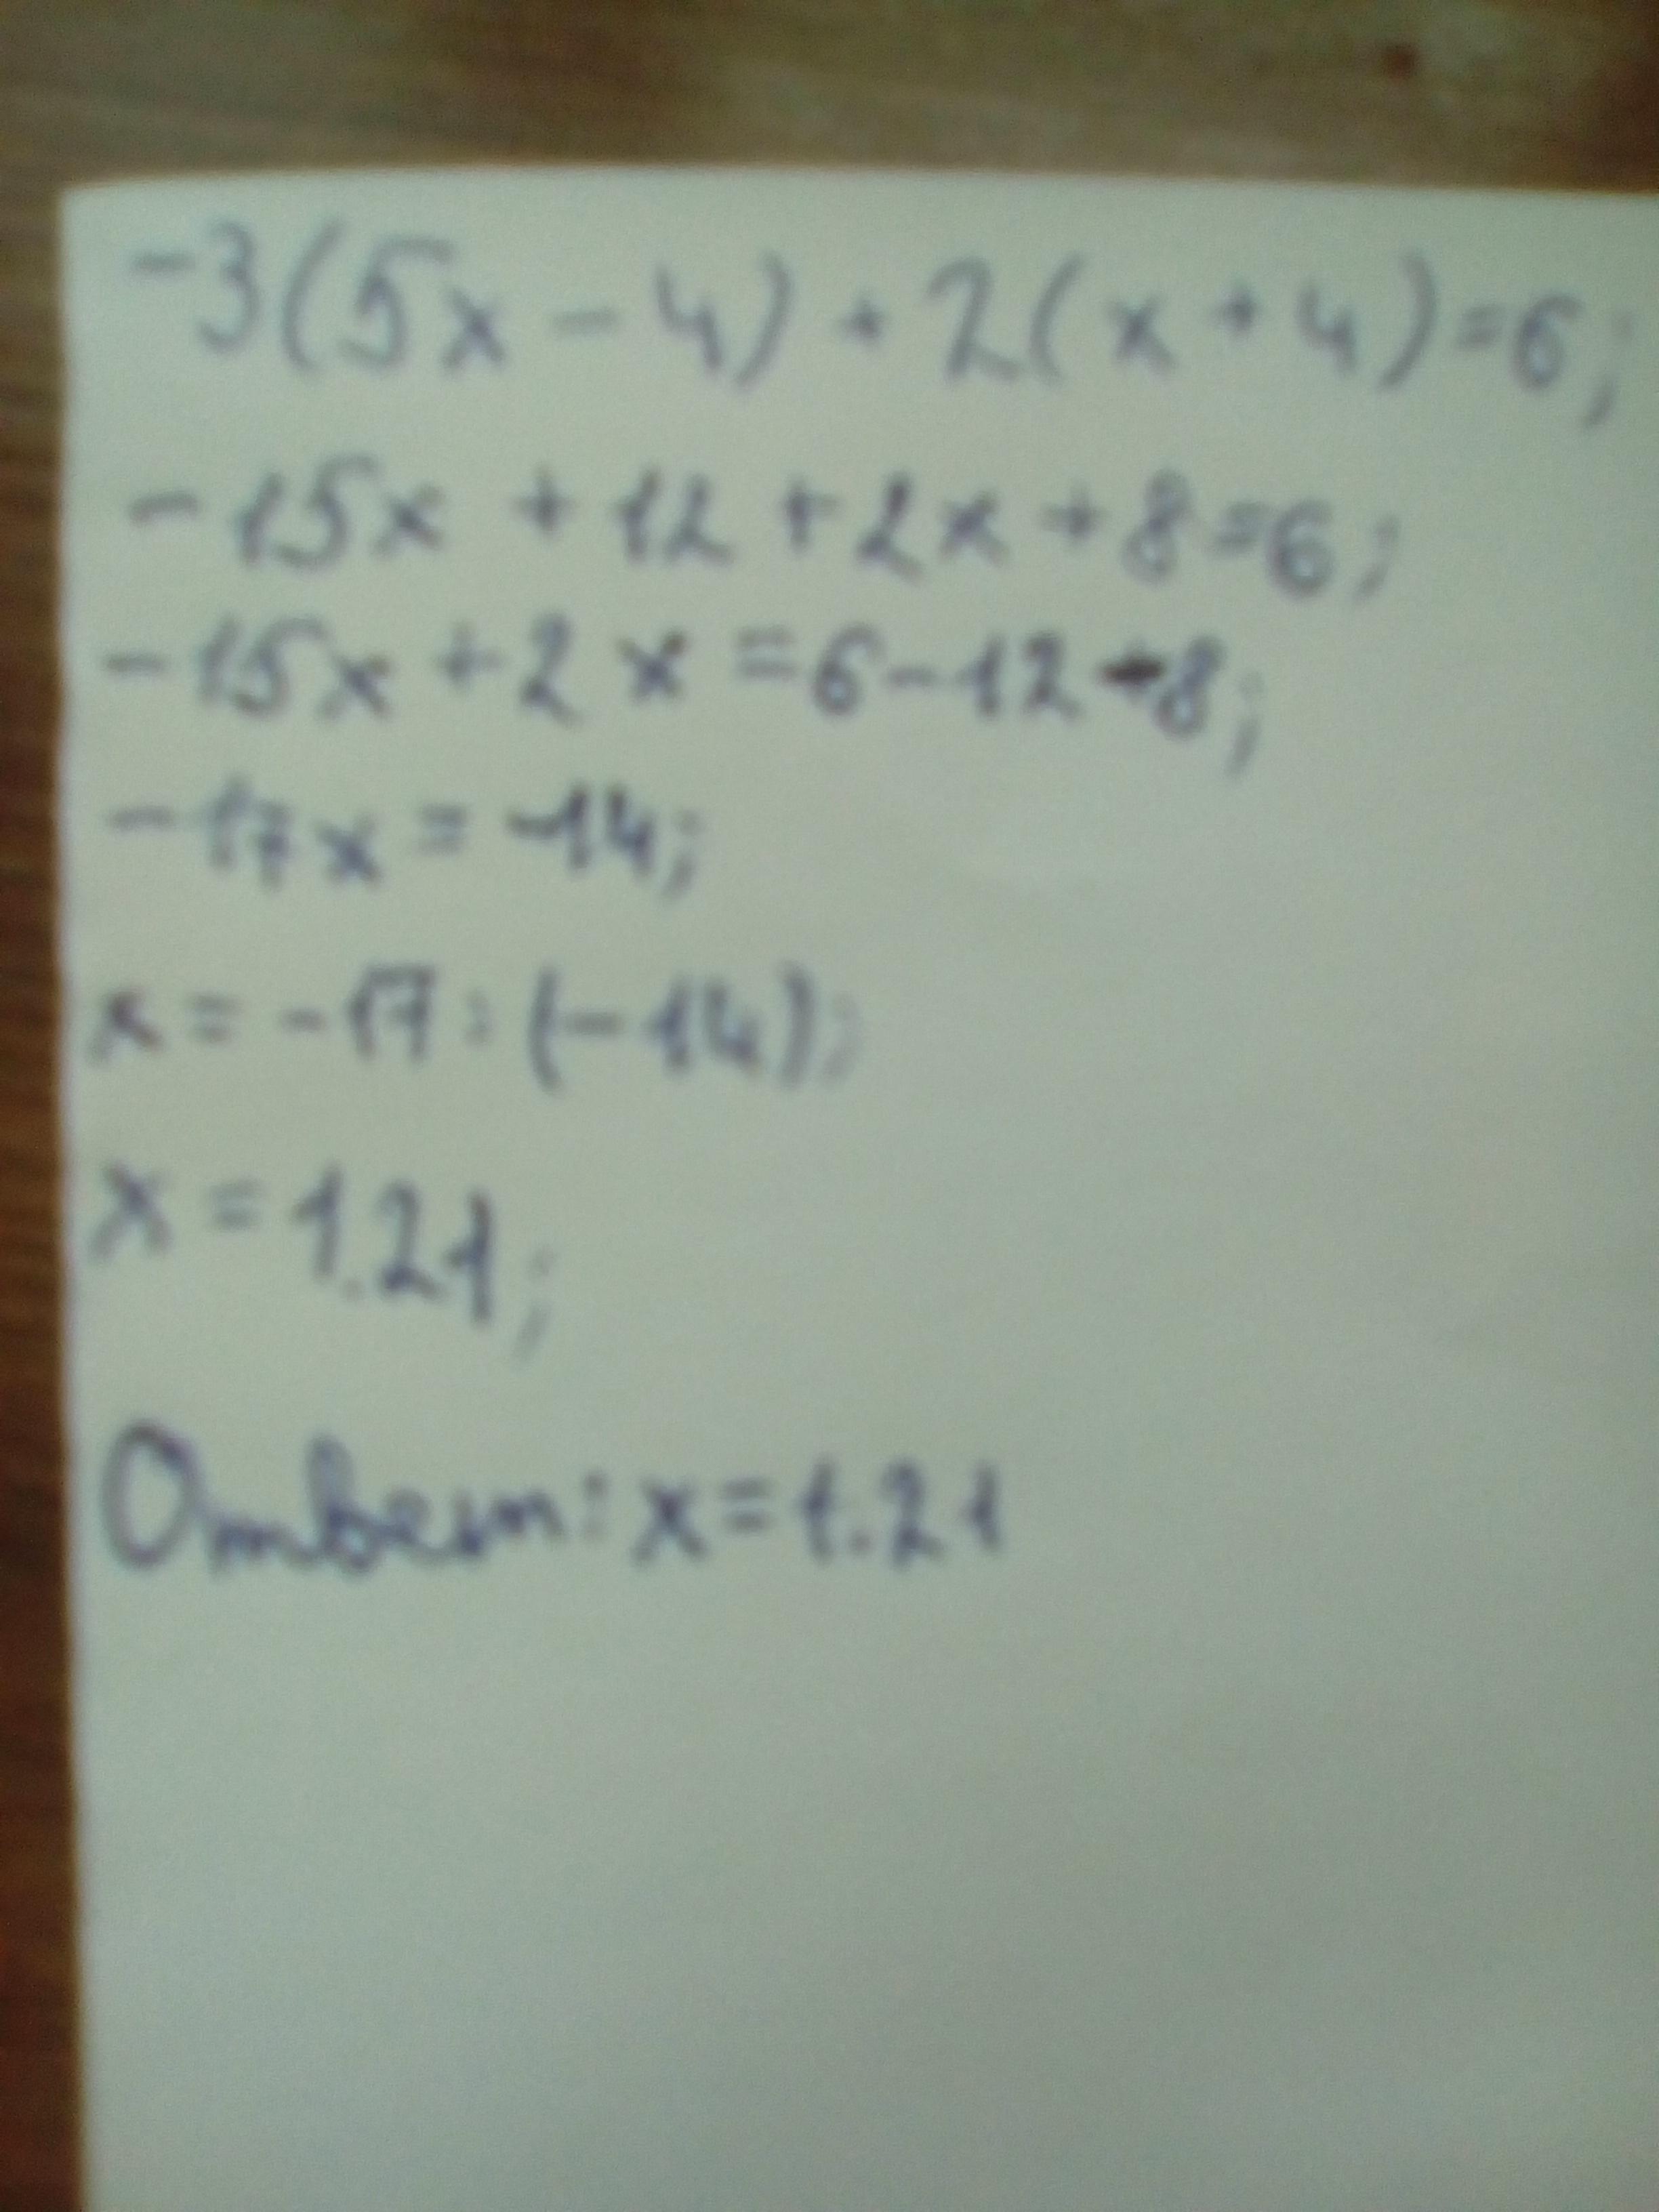 -3(5x-4)+2(x+4)=6;
-15x+12+2x+8=6;
-15x+2x=6-12-8;
-17x=-14;
x=-17:(-14);
x=1.21;
Ответ: x=1.21